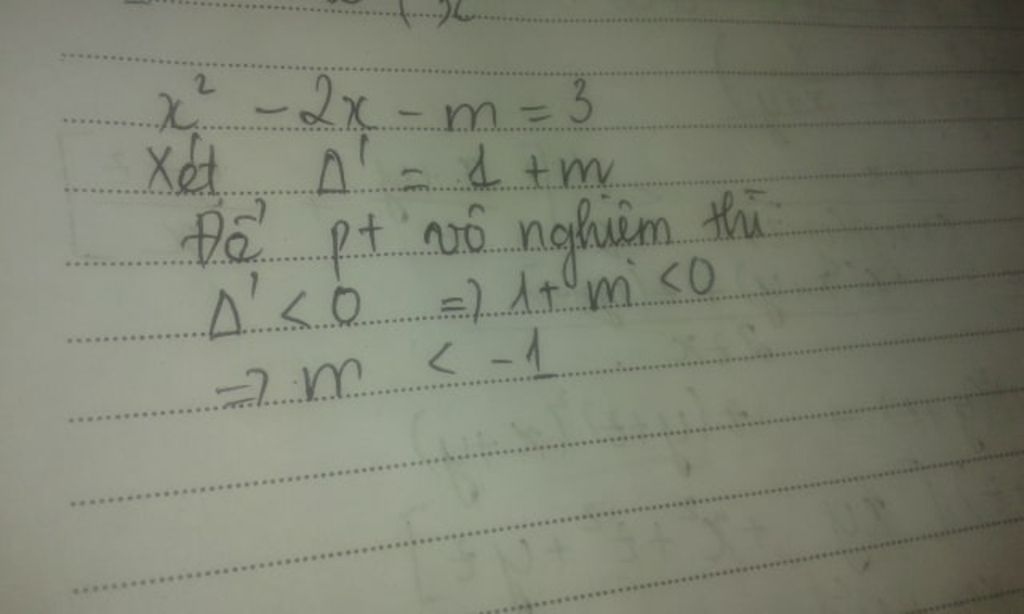 x² - 2x - m = 3
Xét Δ' = 1 + m
Để pt vô nghiệm thì
Δ' < 0 => 1 + m < 0
=> m < -1